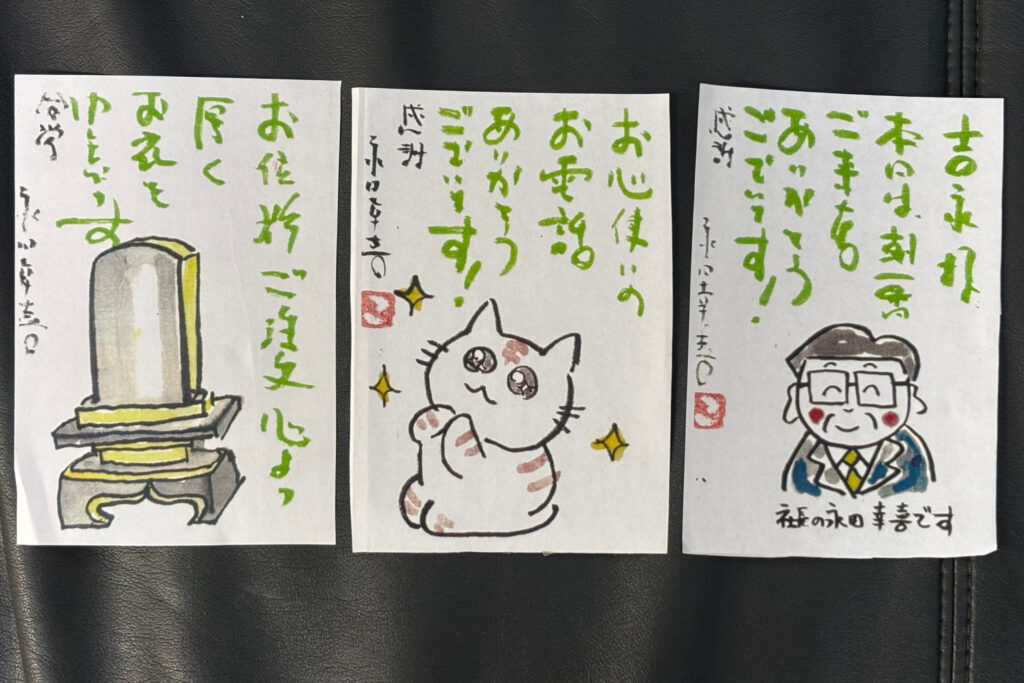 吉永様
本日は、刻一霊
ご来店
ありがとう
ございます!
感謝
永田幸喜
社長の永田幸喜です
お心使いの
お電話
ありがとう
ございます!
感謝
永田幸喜
お位牌ご注文心より
厚く
お礼を
申し上げます
合掌
永田幸喜